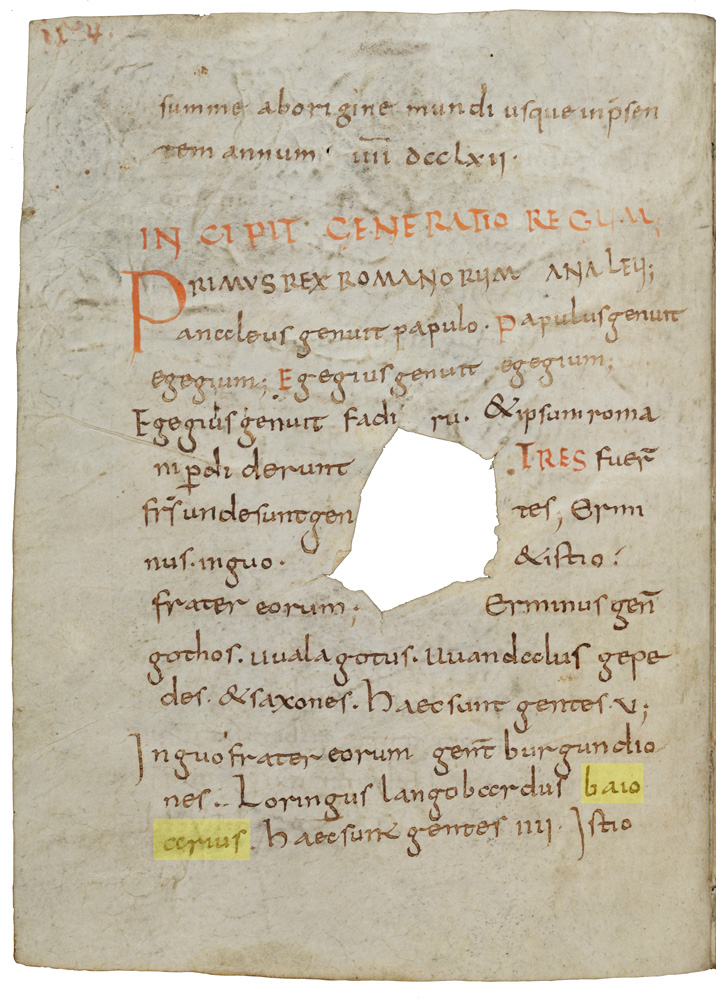 summe aborigine mundi usque inp̄sen
tem annum · iiii dcclxii·
INCIPIT GENERATIO REGUM;
PRIMUS REX ROMANORUM ANALEU;
Pancleus genuit papulo. Papulus genuit
egegium; Egegius genuit egegium;
Egegius genuit fadi ru. & ipsum roma
ni ꝑdiderunt TRES fuer̄
fr̄s unde sunt gen tes, Ermi
nus. inguo. & istio ;
frater eorum; Erminus geñ
gothos. uualagotus. uuandalus gepe
des. & saxones. haec sunt gentes v;
Inguo frater eorum gen̄t burgundio
nes.. Loringus langobardus baio
arius. haec sunt gentes iiii. Istio